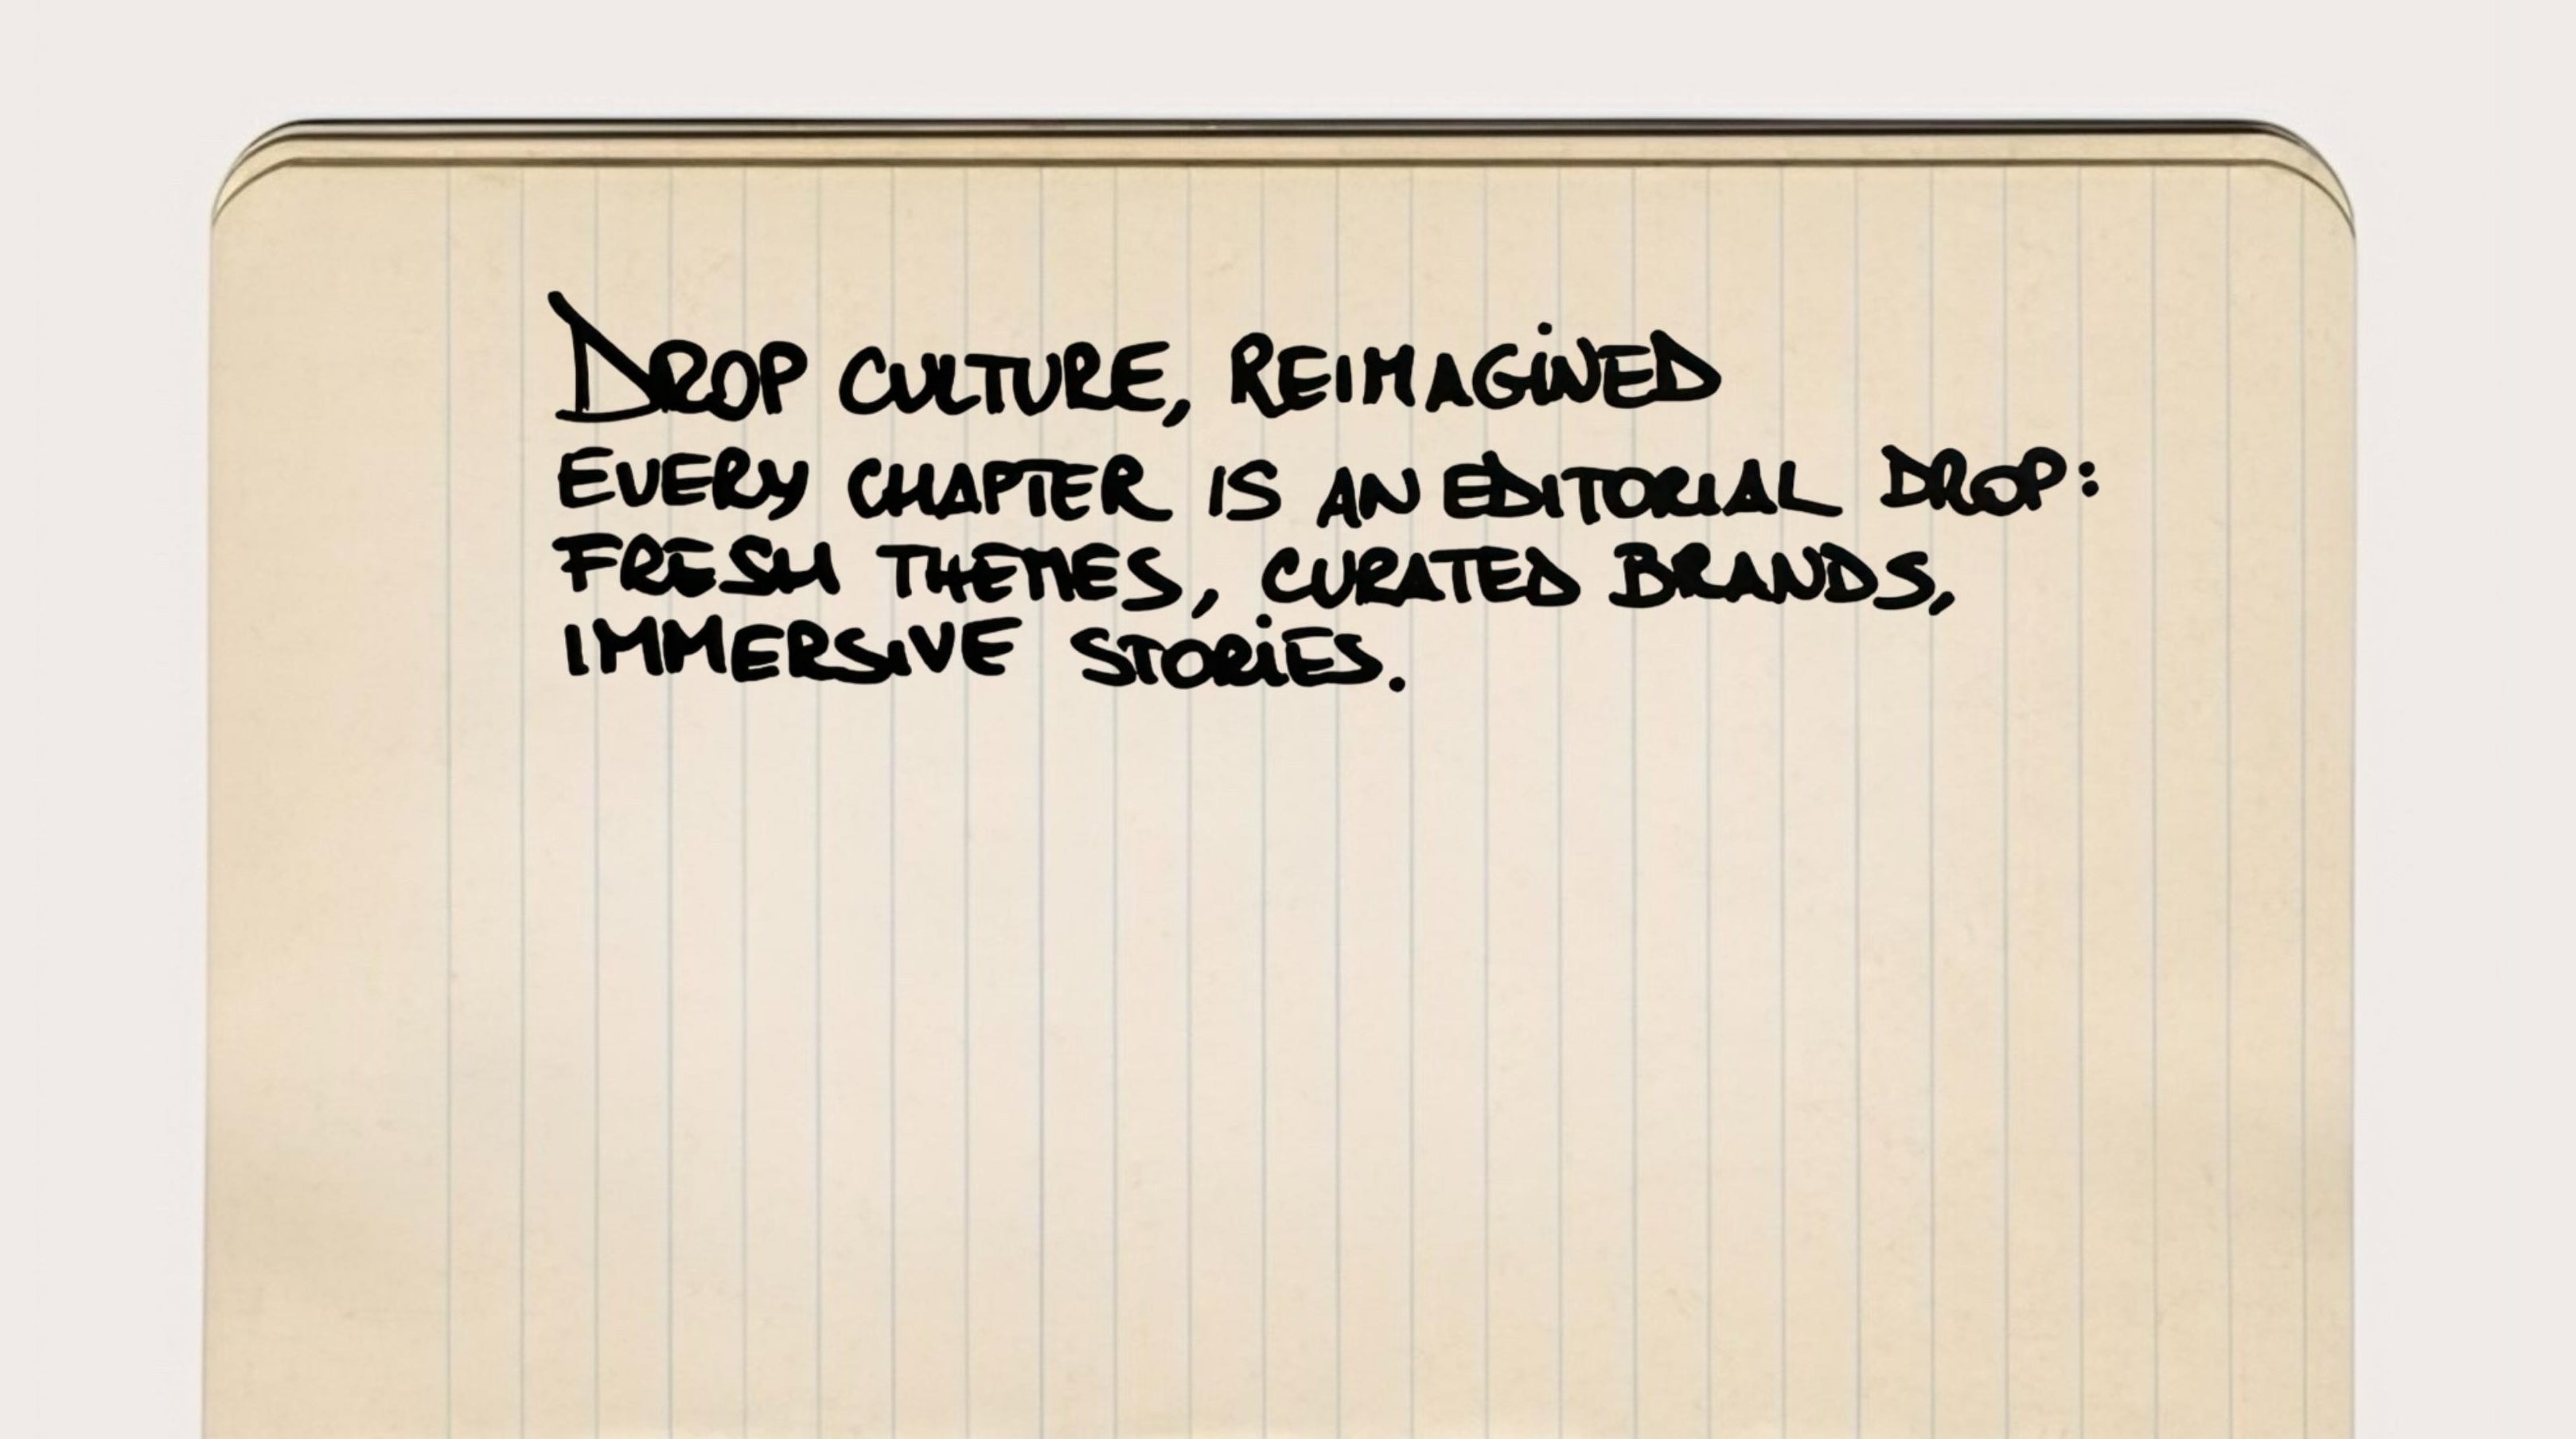 DROP CULTURE, REIMAGINED
EVERY CHAPTER IS AN EDITORIAL DROP:
FRESH THEMES, CURATED BRANDS,
IMMERSIVE STORIES.